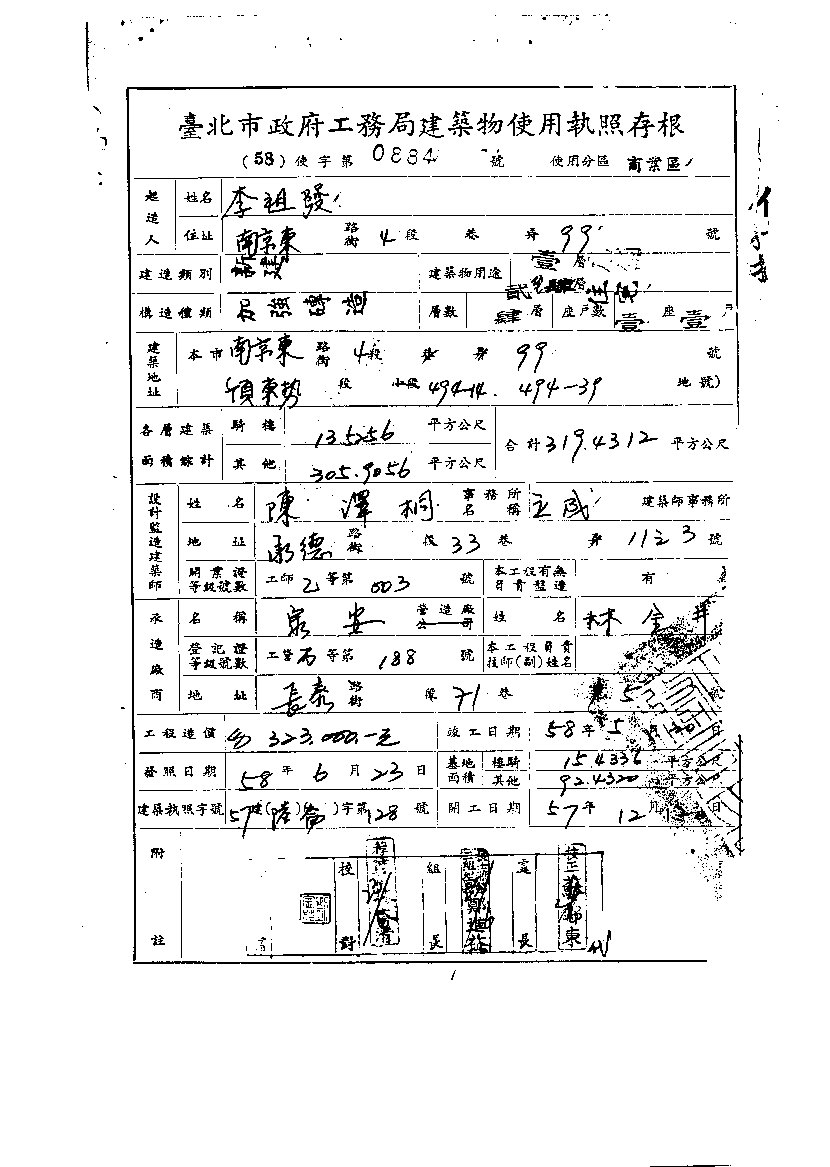 臺北市政府工務局建築物使用執照存根
(58) 使字第 0884 號 使用分區 商業區
起造人 姓名 李祖發
住址 南京東 路街 4 段 巷 弄 99 號
建造類別 新建 建築物用途 壹層
構造種類 加強磚造 層數 肆層 座戶數 壹座壹戶
建築地址 本市 南京東 路街 4段 巷 弄 99 號
(頂東勢 段 小段 494-14. 494-39 地號)
各層建築面積綜計 騎樓 13.5256 平方公尺 合計 319.4312 平方公尺
其他 305.9056 平方公尺
設計監造建築師 姓名 陳澤桐 事務所名稱 建築師事務所
地址 承德 路街 段 33 巷 弄 號
開業證等級號數 工師 乙 等第 003 號 本工程有無負責監造 有
承造廠商 名稱 泉安 營造廠公司 姓名 林金
登記證等級號數 工營 丙 等第 188 號 本工程負責技師(副)姓名
地址 長泰 路街 段 71 巷 5
工程造價 323.000.-元 竣工日期 58 年 5 月 日
發照日期 58 年 6 月 23 日 基地面積 樓騎 15.4336 平方公尺
其他 92.4320 平方公尺
建築執照字號 57 建(陸)字第 128 號 開工日期 57 年 12 月 日
附註 校對 組長 處長 代